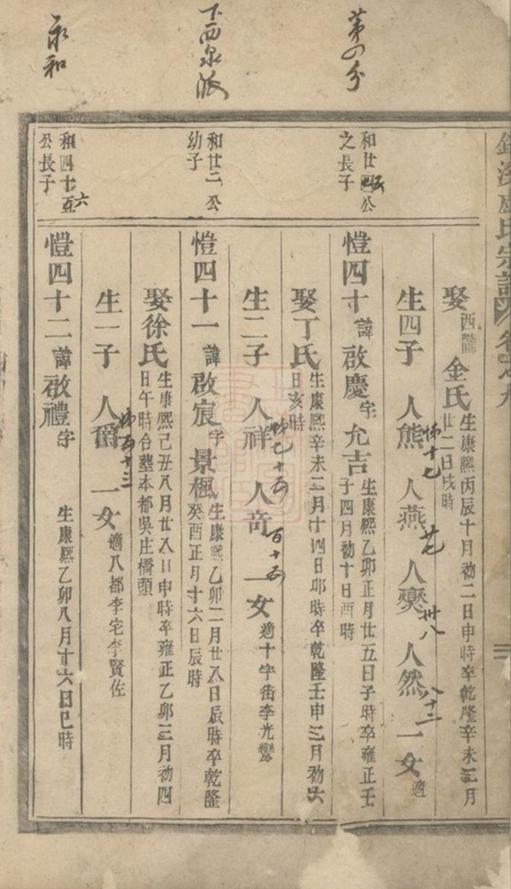 第四分
下西泉派
永和
盧氏宗譜
娶西隴金氏生康熙丙辰十月初二日申時卒乾隆辛未三月廿二日戌時
生四子 人熊 人燕 人爕 人然 一女適
第十七 廿九 卅八 八十二
和廿四五公之長子
愷四十諱啟慶字允吉生康熙乙卯正月廿五日子時卒雍正壬子四月初十日酉時
娶丁氏生康熙辛未二月十四日卯時卒乾隆壬申三月初六日亥時
生二子 人祥 人奇 一女適十字街李光鸞
百十五
和廿二公幼子
愷四十一諱啟宸字景楓生康熙乙卯二月廿八日辰時卒乾隆癸酉正月十六日辰時
娶徐氏生康熙己丑八月廿八日申時卒雍正乙卯三月初四日午時合塟本都吳庄橋頭
生一子 人爵 一女適八都李宅李賢佐
第百十三
和四十五六公長子
愷四十二諱啟禮字 生康熙乙卯八月十六日巳時